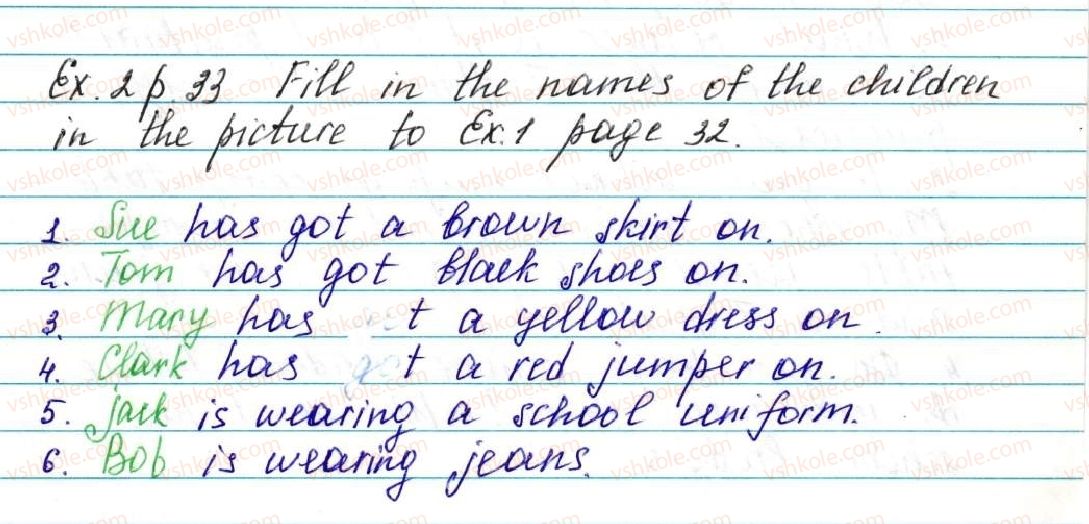 Ex. 2 p. 33 Fill in the names of the children
in the picture to Ex. 1 page 32.
1. Sue has got a brown skirt on.
2. Tom has got black shoes on.
3. Mary has t a yellow dress on.
4. Clark has got a red jumper on.
5. Jack is wearing a school uniform.
6. Bob is wearing jeans.